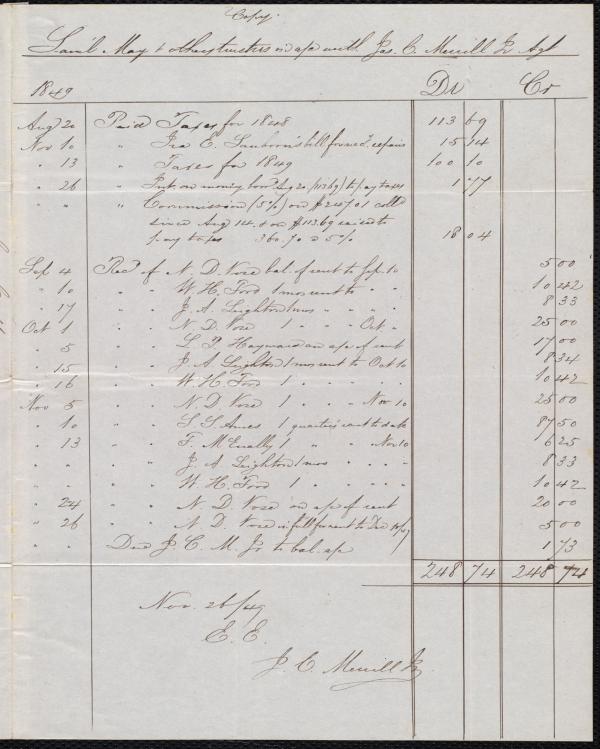 Copy.
Sam'l May & other trustees in a/c with Jas. C. Merrill Jr Agt
1849 Dr Cr
Aug 20 Paid Taxes for 1848 113 69
Nov 10 " Ira E. Sanborn's bill for repairs 15 14
" 13 " Taxes for 1849 100 10
" 26 " Int on money bor'd Aug 20 (113.69) to pay taxes 1 77
" " " Commission (5%) on $247.01 coll'd
since Aug 14. & on $113.69 raised to
pay taxes 360.70 @ 5% 18 04
Sep 4 Rec'd of N. D. Vose bal. of rent to Sep. 10 5 00
" 10 " " W. H. Ford 1 mos rent to " " 10 42
" 17 " " J. A. Leighton 1 mos " " " " 8 33
Oct 1 " " N. D. Vose 1 " " " Oct " 25 00
" 5 " " L. P. Hayward on a/c of rent 17 00
" 15 " " J. A. Leighton 1 mos rent to Oct 10 8 34
" 16 " " W. H. Ford 1 " " " " 10 42
Nov 5 " " N. D. Vose 1 " " " Nov 10 25 00
" 10 " " S. S. Ames 1 quarter's rent to date 87 50
" 13 " " F. McEnally 1 " " " Nov 10 6 25
" " " " J. A. Leighton 1 mos " " " " 8 33
" " " " W. H. Ford 1 " " " " 10 42
" 24 " " N. D. Vose on a/c of rent 20 00
" 26 " " N. D. Vose in full for rent to Dec 10/49 5 00
" " Due J. C. M. Jr. to bal. a/c 1 73
248 74 248 74
Nov. 26/49
E. E.
J. C. Merrill Jr